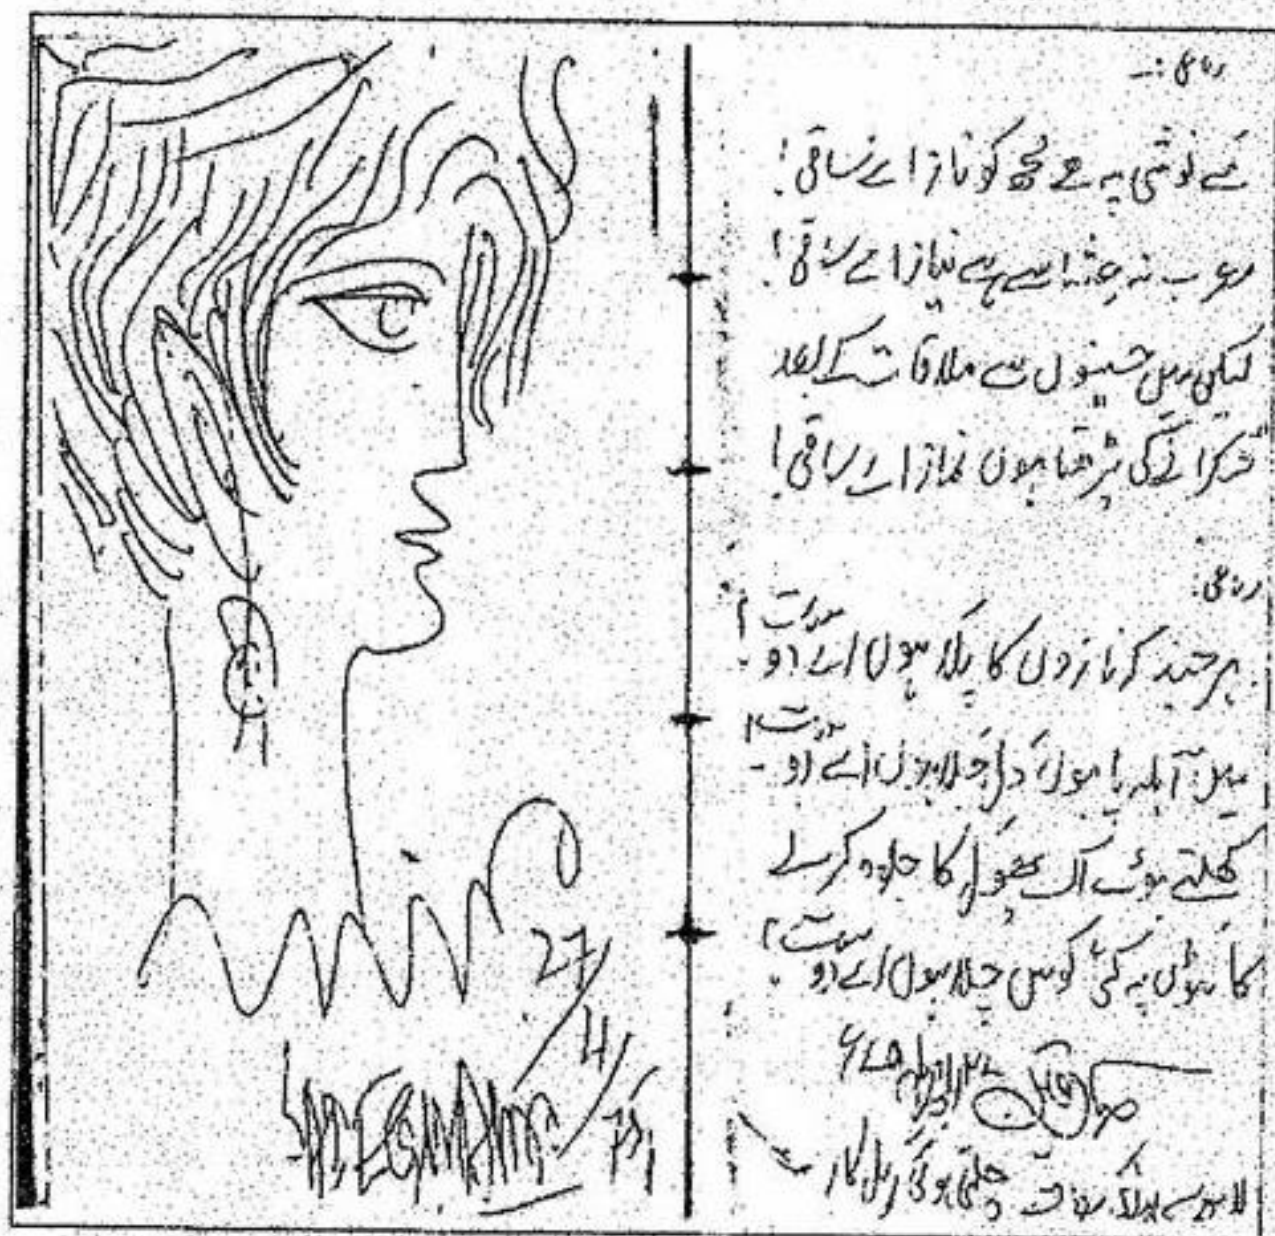 رباعی :-
مے نوشی پہ ہے مجھ کو ناز اے ساقی!
نہ سے ہے نیاز اے ساقی!
لیکن میں حسینوں سے ملاقات کے بعد
شکرانے کی پڑھتا ہوں نماز اے ساقی!
رباعی:
ہر چند کہ نازوں کا پلا ہوں اے دوست!
میں آبلہ پا ہوں، دل جلا ہوں اے دوست!
کھلتے ہوئے اک پھول کا جلوہ کرنے
کانٹوں پہ کئی کوس چلا ہوں اے دوست!
صادقین ۲۷ اپریل ۷۵ء
لاہور سے چلتی ہوئی ریل کار
27/4/75
SADEQUAIN